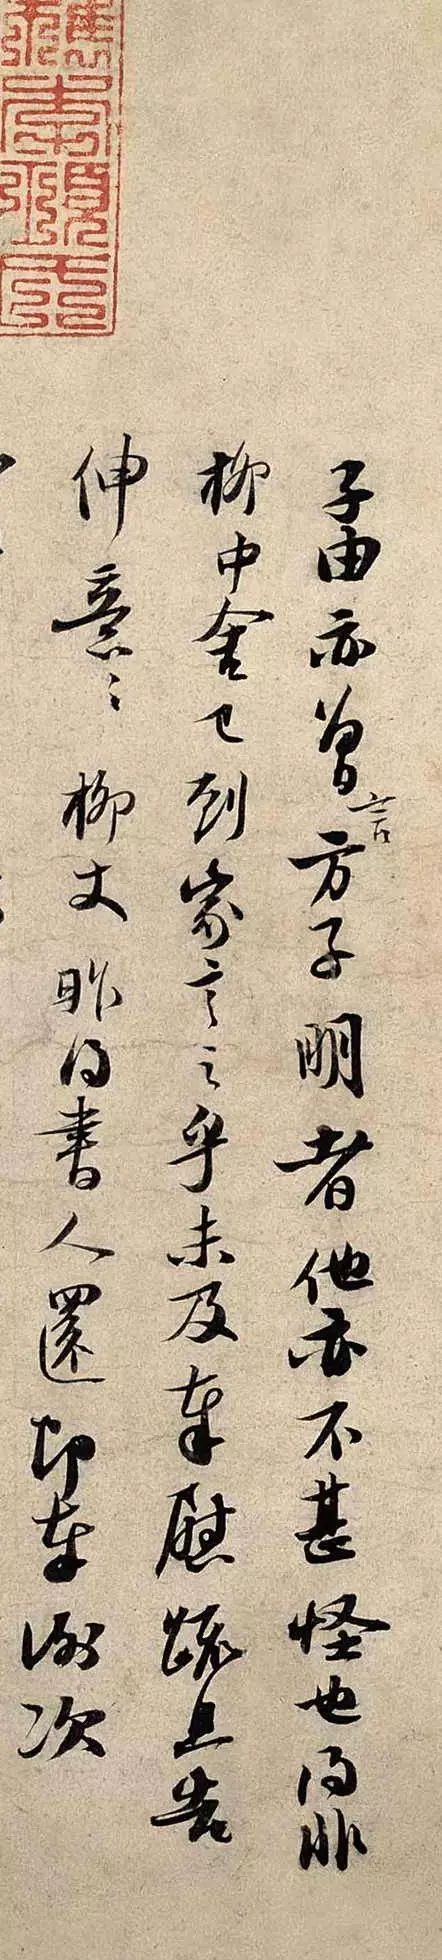 子由亦曾言方子明者他亦不甚怪也得非
柳中舍已到家言之乎未及奉慰疏且告
伸意意柳丈昨得書人還即奉謝次